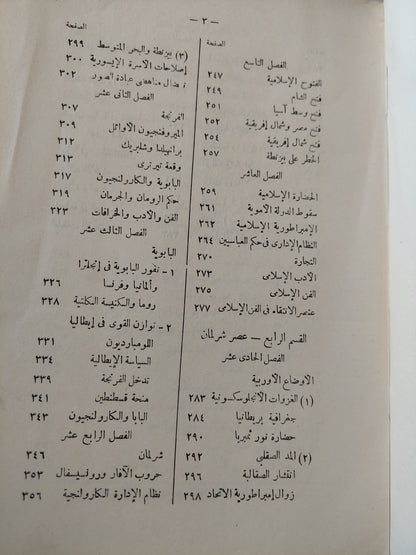 — ٣ —
الصفحة
الفصل التاسع
الفتوح الإسلامية ٢٤٧
فتح الشام ٢٤٩
فتح وسط آسيا ٢٥١
فتح مصر وشمال إفريقية ٢٥٢
فتح شمال إفريقية ٢٥٤
الخطر على بيزنطة ٢٥٧
الفصل العاشر
الحضارة الإسلامية ٢٥٩
سقوط الدولة الأموية ٢٦١
الإمبراطورية الإسلامية ٢٦٢
النظام الإدارى فى حكم العباسيين ٢٦٤
التجارة ٢٧٠
الأدب الإسلامى ٢٧٣
الفن الإسلامى ٢٧٥
عنصر الانتقاء فى الفن الإسلامى ٢٧٧
القسم الرابع — عصر شرلمان
الفصل الحادى عشر
الأوضاع الأوربية
(١) الغزوات الأنجلوسكسونية ٢٨٣
جغرافية بريطانيا ٢٨٤
حضارة نورثمبريا ٢٩٠
(٢) المد الصقلبى ٢٩٢
انتشار الصقالبة ٢٩٦
زوال إمبراطورية الاتحاد ٢٩٨
الصفحة
(٣) بيزنطة والبحر المتوسط ٢٩٩
إصلاحات الأسرة الإيسورية ٣٠٠
نضال مناهضى عبادة الصور ٣٠٢
الفصل الثانى عشر
الفرنجة ٣٠٧
الميروفنجيون الأوائل ٣٠٩
برانهيلدا وشلبريك ٣١٢
وقعة تيرترى ٣١٣
البابوية والكارولنجيون ٣١٧
حكم الرومان والجرمان ٣١٩
الفن والأدب والخرافات ٣٢٣
الفصل الثالث عشر
البابوية
١ – نفور البابوية فى إنجلترا
وألمانيا وفرنسا ٣٢٦
روما والكنيسة الكلتية ٣٢٨
٢ – توازن القوى فى إيطالية
اللومبارديون ٣٣١
السياسة الإيطالية ٣٣٤
تدخل الفرنجة ٣٣٩
منحة قسطنطين ٣٤١
البابا والكارولنجيون ٣٤٣
الفصل الرابع عشر
شرلمان ٣٤٦
حروب الآفار وورنسيسفال ٣٥٣
نظام الإدارة الكارولنجية ٣٥٦